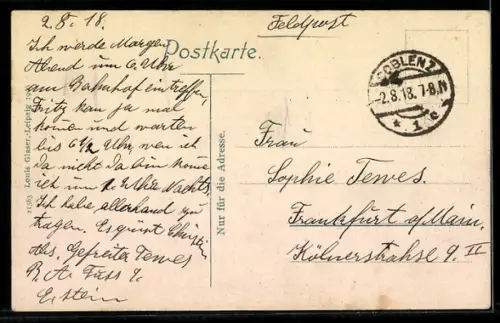 2.8.18.
Ich werde Morgen
Abend um 6 Uhr
am Bahnhof eintreffen,
Fritz kan ja mal
komen und warten
bis 6½ Uhr, wen ich
da nicht da bin kome
ich um 1 Uhr Nachts
Ich habe allerhand zu
tragen. Es grüst
Abs. Gefreiter Tewes
B. A. Fuss 9.
Postkarte.
Nur für die Adresse.
Louis Glaser, Leipzig
Feldpost
COBLENZ
-2.8.18. 7-8.N
* 1 c
Frau
Sophie Tewes.
Frankfurt a/Main,
Kölnerstrahse 9 II